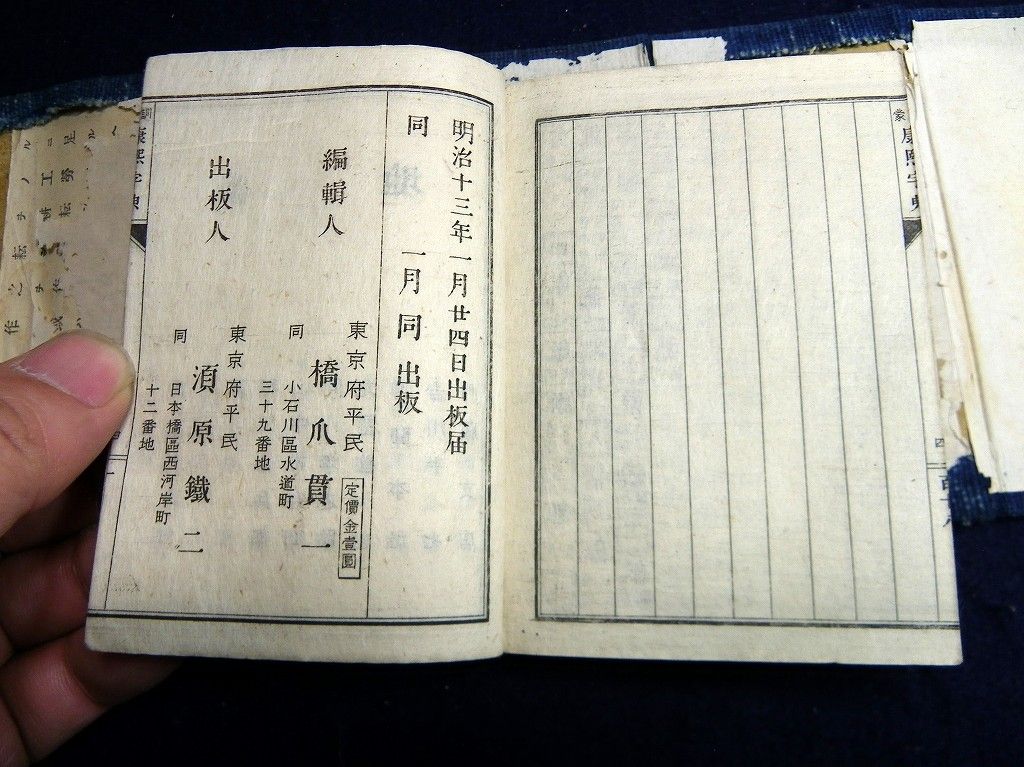 蒙康熙字典
四
明治十三年一月廿四日出板届
同 一月同出板
定價金壹圓
編輯人
東京府平民
橋爪貫一
同
小石川區水道町
三十九番地
出板人
東京府平民
須原鐵二
同
日本橋區西河岸町
十二番地
訓康熙字典